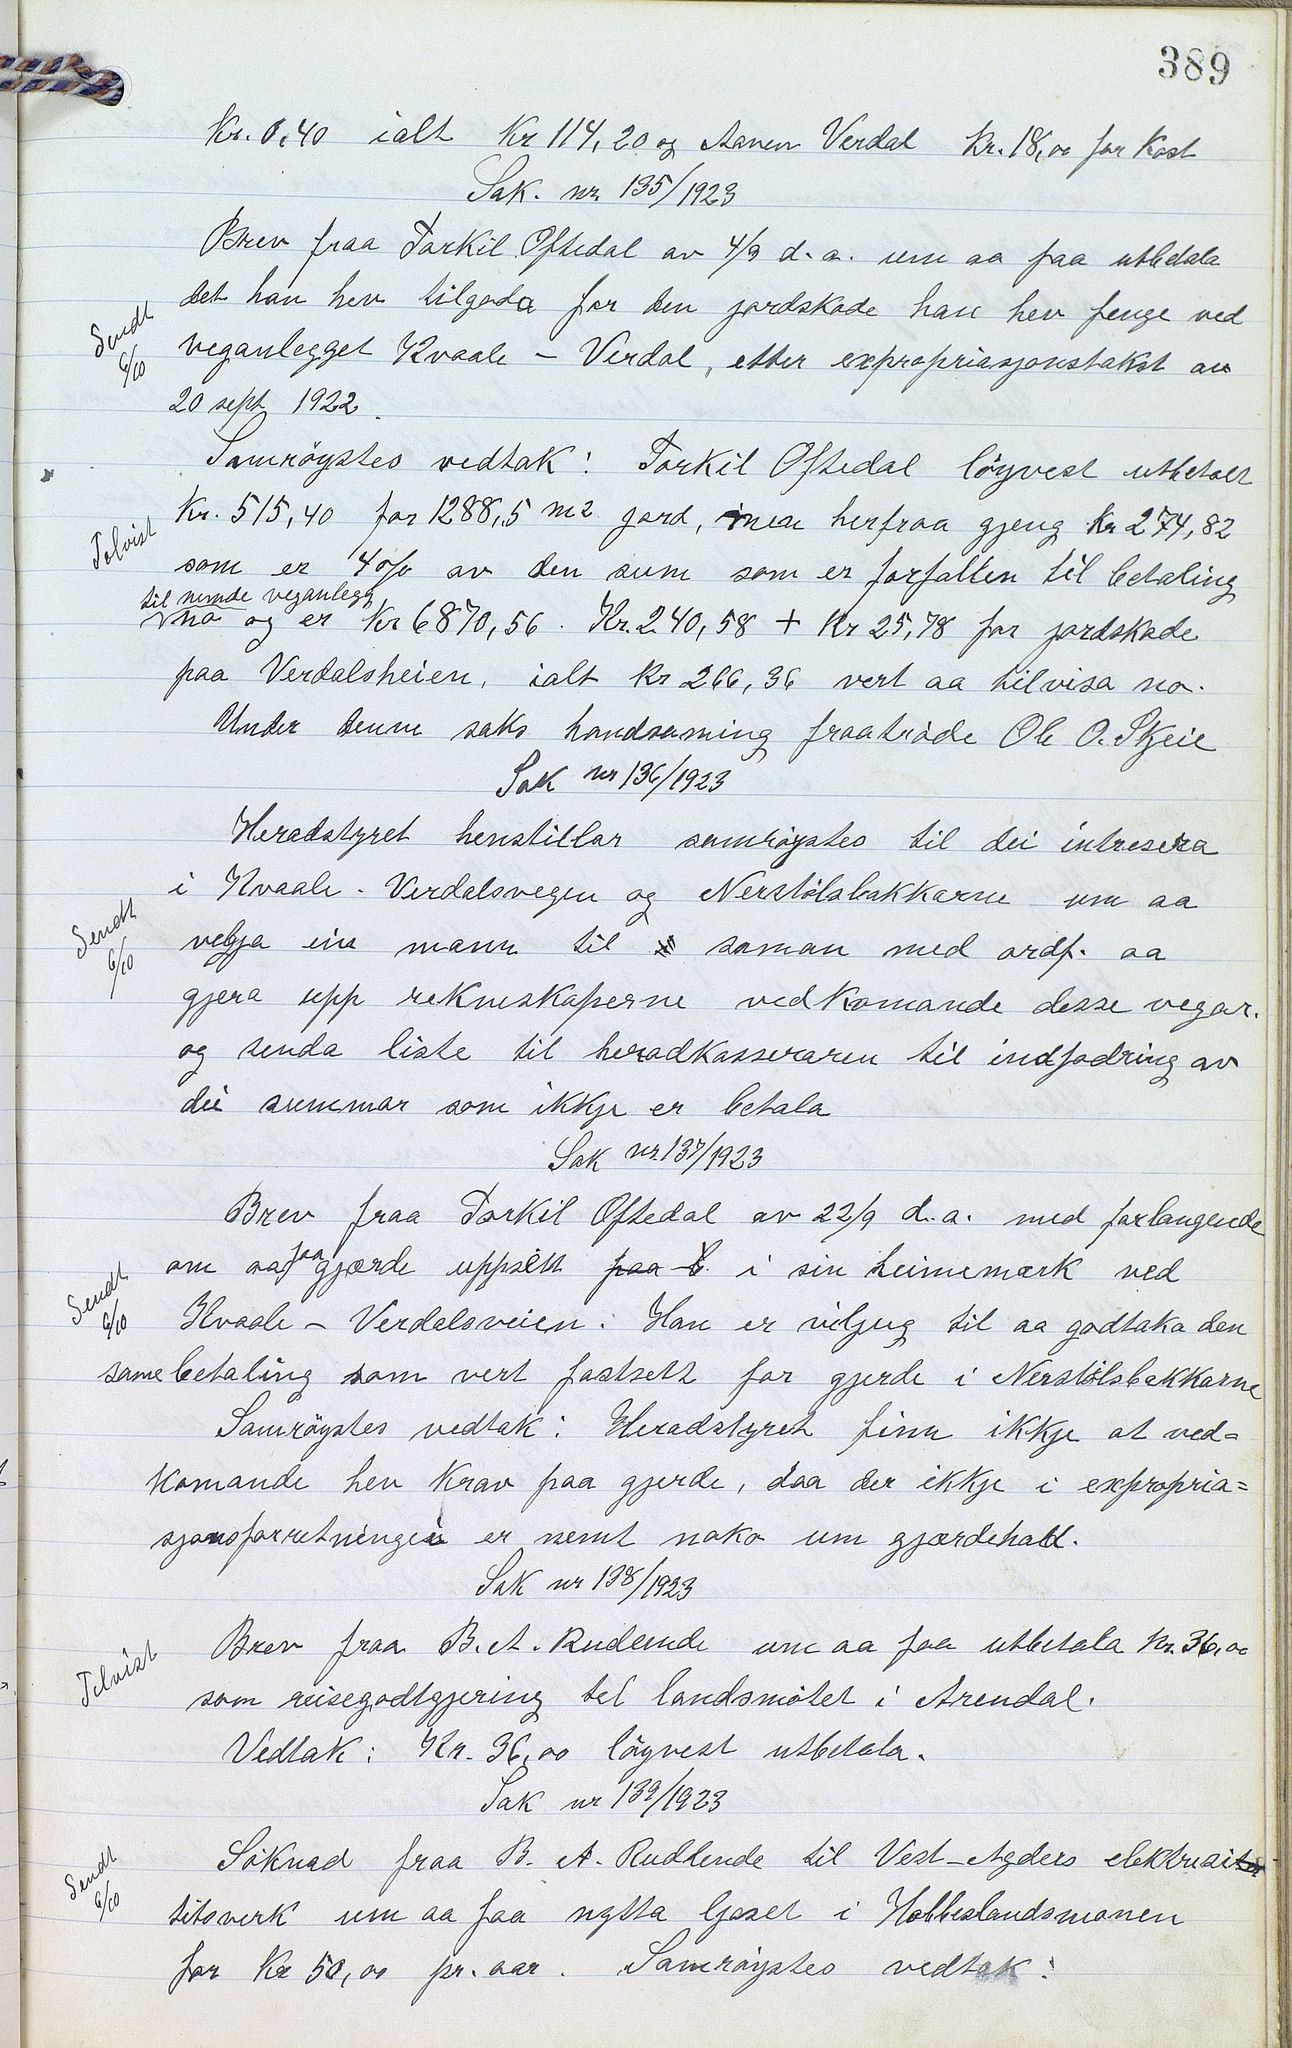 389
Kr. 0,40 ialt Kr 114,20 og Aanen Verdal Kr. 18,00 for Kost
Sak. nr. 135/1923
Brev fraa Torkil Oftedal av 4/9 d.a. um aa faa utbetala
det han hev tilgoda for den jordskade han hev fenge ved
Sendt 6/10
veganlegget Kvaale - Verdal, etter expropriasjonstakst av
20 sept 1922.
Samröystes vedtak: Torkil Oftedal löyvest utbetalt
Kr. 515,40 for 1288,5 m2 jord, men herfraa gjeng Kr 274,82
Tilvist
som er 4% av den sum som er forfallen til betaling
til nemde veganlegg
no og er Kr 6870,56. Kr. 240,58 + Kr 25,78 for jordskade
paa Verdalsheien, ialt Kr 266,36 vert aa tilvisa no.
Under denne saks handsaming fraatrådde Ole O. Skjeie
Sak nr 136/1923
Heradstyret henstillar samröystes til dei intresera
i Kvaale - Verdalsvegen og Nerstölsbakkarne um aa
Sendt 6/10
velja ein mann til saman med ordf. aa
gjera upp rekneskaperne vedkomande desse vegar.
og senda liste til heradkasseraren til indfodring av
dei summar som ikkje er betala
Sak nr. 137/1923
Brev fraa Torkil Oftedal av 22/9 d.a. med forlangende
om aa faa gjærde uppsett paa i sin heimemark ved
Sendt 6/10
Kvaale - Verdalsveien. Han er viljug til aa godtaka den
same betaling som vert fastsett for gjerde i Nerstölsbakkarne
Samröystes vedtak: Heradstyret finn ikkje at ved=
komande hev krav paa gjerde, daa der ikkje i expropria=
sjonsforretningen er nemt noko um gjærdehald.
Sak nr 138/1923
Brev fraa B. A. Rudlende um aa faa utbetala Kr. 36,00
Tilvist
som reisegodtgjering til landsmötet i Arendal.
Vedtak: Kr. 36,00 löyvest utbetala.
Sak nr 139/1923
Söknad fraa B. A. Rudlende til Vest-Agders elektresi
Sendt 6/10
titsverk um aa faa nytta ljoset i Hobbeslandsmonen
for Kr 50,00 pr. aar. Samröystes vedtak: